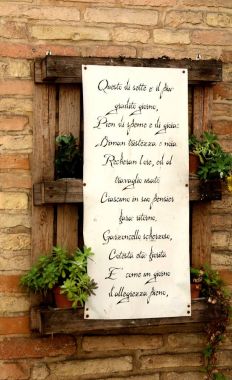 Questo di sette è il più
gradito giorno,
Pien di speme e di gioia:
Diman tristezza e noia
Recheran l'ore, ed al
travaglio usato
Ciascuno in suo pensier
farà ritorno.
Garzoncello scherzoso,
Cotesta età fiorita
E' come un giorno
d'allegrezza pieno,